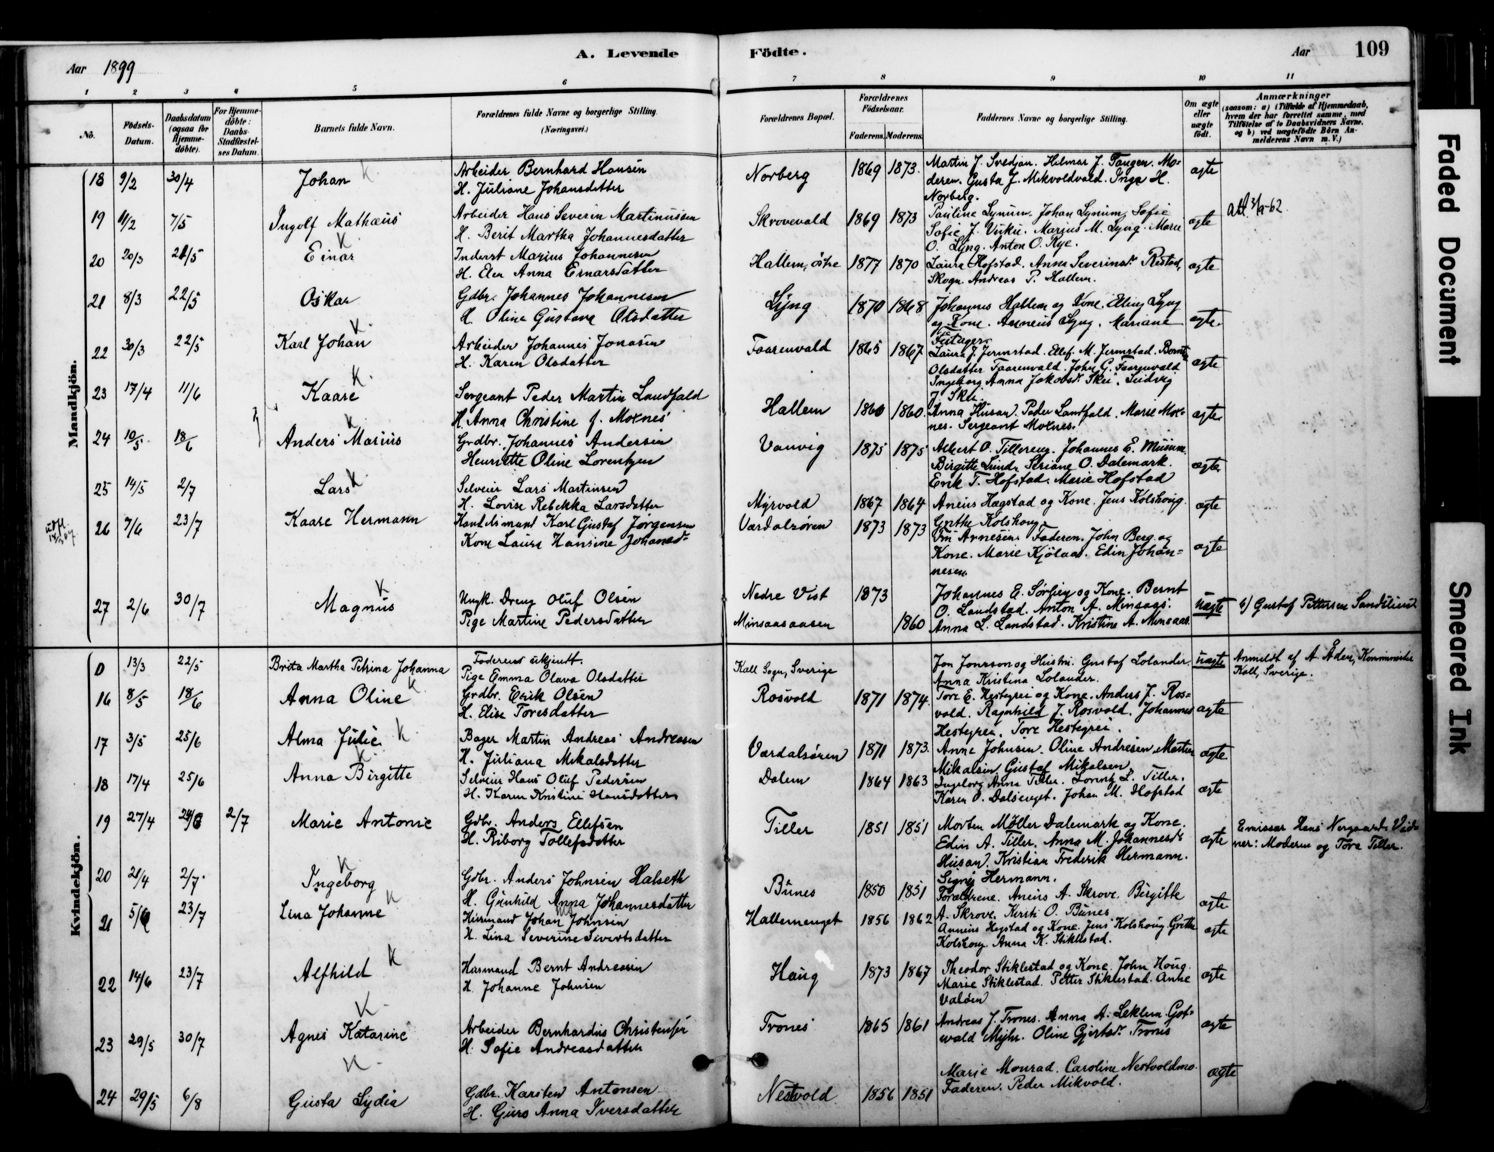 A. Levende Födte.
Aar 1899
Aar 109
1 2 3 4 5 6 7 8 9 10 11
No.
Födsels-Datum.
Daabsdatum (ogsaa for Hjemme-döbte).
For Hjemme-döbte: Daabs-Stadfæstel-ses Datum.
Barnets fulde Navn.
Forældrenes fulde Navne og borgerlige Stilling. (Næringsvei.)
Forældrenes Bopæl.
Forældrenes Födselsaar.
Faderens. Moderens.
Faddernes Navne og borgerlige Stilling.
Om ægte eller uægte födt.
Anmærkninger
(saasom: a) i Tilfælde af Hjemmedaab, hvem der har forrettet samme, med Tilföielse af to Daabsvidners Navne, og b) ved uægtefödte Börn An-melderens Navn m. V.)
Mandkjön.
18 9/2 30/4 Johan Arbeider Bernhard Hansen Norberg 1869 1873 Martin J. Svedjan. Hilmar J. Tangen. Mo- ægte
H. Juliane Johansdatter deren. Gusta J. Mikvoldvald. Inga H.
Norberg.
19 11/2 7/5 Ingolf Mathæus Arbeider Hans Severin Martinussen Skrovevald 1869 1873 Pauline Lynum. Johan Lynum. Sofie ægte
H. Berit Martha Johannesdatter Sofie J. Virke. Marius M. Lyng. Marie
O. Lyng. Anton O. Rye.
20 20/3 21/5 Einar Inderst Marius Johannesen Hallem, östre 1877 1870 Laura Hofstad. Anna Severinsd. Ristad, ægte
H. Elen Anna Einarsdatter Skogn. Andreas P. Hallem.
21 8/3 22/5 Oskar Gdbr. Johannes Johannesen Lyng 1870 1868 Johannes Hallem og Kone. Elling Lyng ægte
H. Oline Gustava Olsdatter og Kone. Anneus Lyng. Mariane
22 30/3 22/5 Karl Johan Arbeider Johannes Jonasen Faarenvald 1865 1867 Laura J. Jermstad. Ellef M. Jermstad. ægte
H. Karen Olsdatter Olsdatter Faarenvald. John G. Faarenvald
Ingeborg Anna Jakobsd. Skei. Ludvig
J. Skei.
23 17/4 11/6 Kaare Sergeant Peder Martin Landfald Hallem 1860 1860 Anna Husan. Peder Landfald. Marie Mok- ægte
H. Anna Christine f. Moknes nes. Sergeant Moknes.
24 10/5 18/6 Anders Marius Grdbr. Johannes Andersen Vanvig 1875 1875 Albert O. Tillereng. Johannes E. Musum ægte
Henriette Oline Lorentzen Birgitte Sunde. Seriane O. Dalemark.
Erik T. Hofstad. Marie Hofstad
25 14/5 2/7 Lars Selveier Lars Martinsen Myrvold 1867 1864 Aneus Hagstad og Kone. Jens Kolshoug. ægte
H. Lovise Rebekka Larsdatter Grethe Kolshoug
26 7/6 23/7 Kaare Hermann Handelsmand Karl Gustaf Jørgensen Værdalsøren 1873 1873 Faderen. John Berg og ægte
Kone Laura Hansine Johansd. Kone. Marie Kjölaas. Edin Johan-
nesen
27 2/6 30/7 Magnus Ungk. Dreng Oluf Olsen Nedre Vist 1873 Johannes E. Sørbieg og Kone. Bernt uægte b) Gustaf Pettersen Landstad
Pige Martine Pedersdatter Minsaasaasen 1860 O. Landstad. Anton A. Minsaas.
Anna L. Landstad. Kristine A. Minsaas.
Kvindekjön.
0 13/3 22/5 Brita Martha Petrina Johanna Faderen ukjendt. Kall Sogn, Sverige Jon Jonsson og Hustru. Gustaf Lolander uægte Anmeldt af A. Åden, Komminister
Pige Emma Olava Olsdatter Anna Kristina Lolander. Kall, Sverige.
16 8/5 18/6 Anna Oline Grdbr. Erik Olsen Rosvold 1871 1874 Tore E. Hestegrei og Kone. Anders J. Ros- ægte
H. Elise Toresdatter vold. Ragnhild J. Rosvold. Johannes
Hestegrei. Tore Hestegrei.
17 3/5 25/6 Alma Julie Bager Martin Andreas Andreasen Værdalsøren 1871 1873 Anna Johnsen. Oline Andresen. Martin ægte
H. Juliana Mikalsdatter Mikalsen. Gustaf Mikalsen.
18 17/4 25/6 Anna Birgitte Selveier Hans Oluf Pedersen Dalem 1864 1863 Ingeborg Anna Tiller. Lorents L. Tiller. ægte
H. Karen Kristine Hansdatter Karen O. Dalsenget. Johan M. Hofstad
19 27/4 24/6 2/7 Marie Antonie Gdbr. Anders Ellefsen Tiller 1851 1851 Morten Möller Dalemark og Kone. ægte Emissær Hans Nergaard. Vid-
H. Riborg Tollefsdatter Edin A. Tiller. Anna M. Johannesd. ner: Moderen og Tora Tiller.
Husan. Kristian Frederik Hermann.
Signy Hermann.
20 21/4 2/7 Ingeborg Gdbr. Anders Johnsen Halseth Bunes 1850 1851 Forældrene. Aneus A. Skrove. Birgitte ægte
H. Gunhild Anna Johannesdatter A. Skrove. Kirsti O. Bunes.
21 5/6 23/7 Lina Johanne Husmand Johan Johnsen Hallemenget 1856 1862 Anneus Hagstad og Kone. Jens Kolshoug. Grethe ægte
H. Lina Severine Sivertsdatter Kolshoug. Anna K. Stiklestad.
22 14/6 23/7 Alfhild Husmand Bernt Andreasen Haug 1873 1867 Theodor Stiklestad og Kone. John Houg. ægte
H. Johanne Johnsen Marie Stiklestad. Petter Stiklestad. Anne
23 20/5 30/7 Agnes Katarine Arbeider Bernhardus Christensen Trones 1865 1861 Andreas J. Trones. Anna A. Leklem. Got- ægte
H. Sofie Andreasdatter wald Myhr. Oline Trones
24 29/5 6/8 Gusta Lydia Gdbr. Karsten Antonsen Nestvold 1856 1851 Marie Monrad. Caroline Nestvoldmo. ægte
H. Guro Anna Iversdatter Faderen. Peder Mikvold.
Faded Document
Smeared Ink